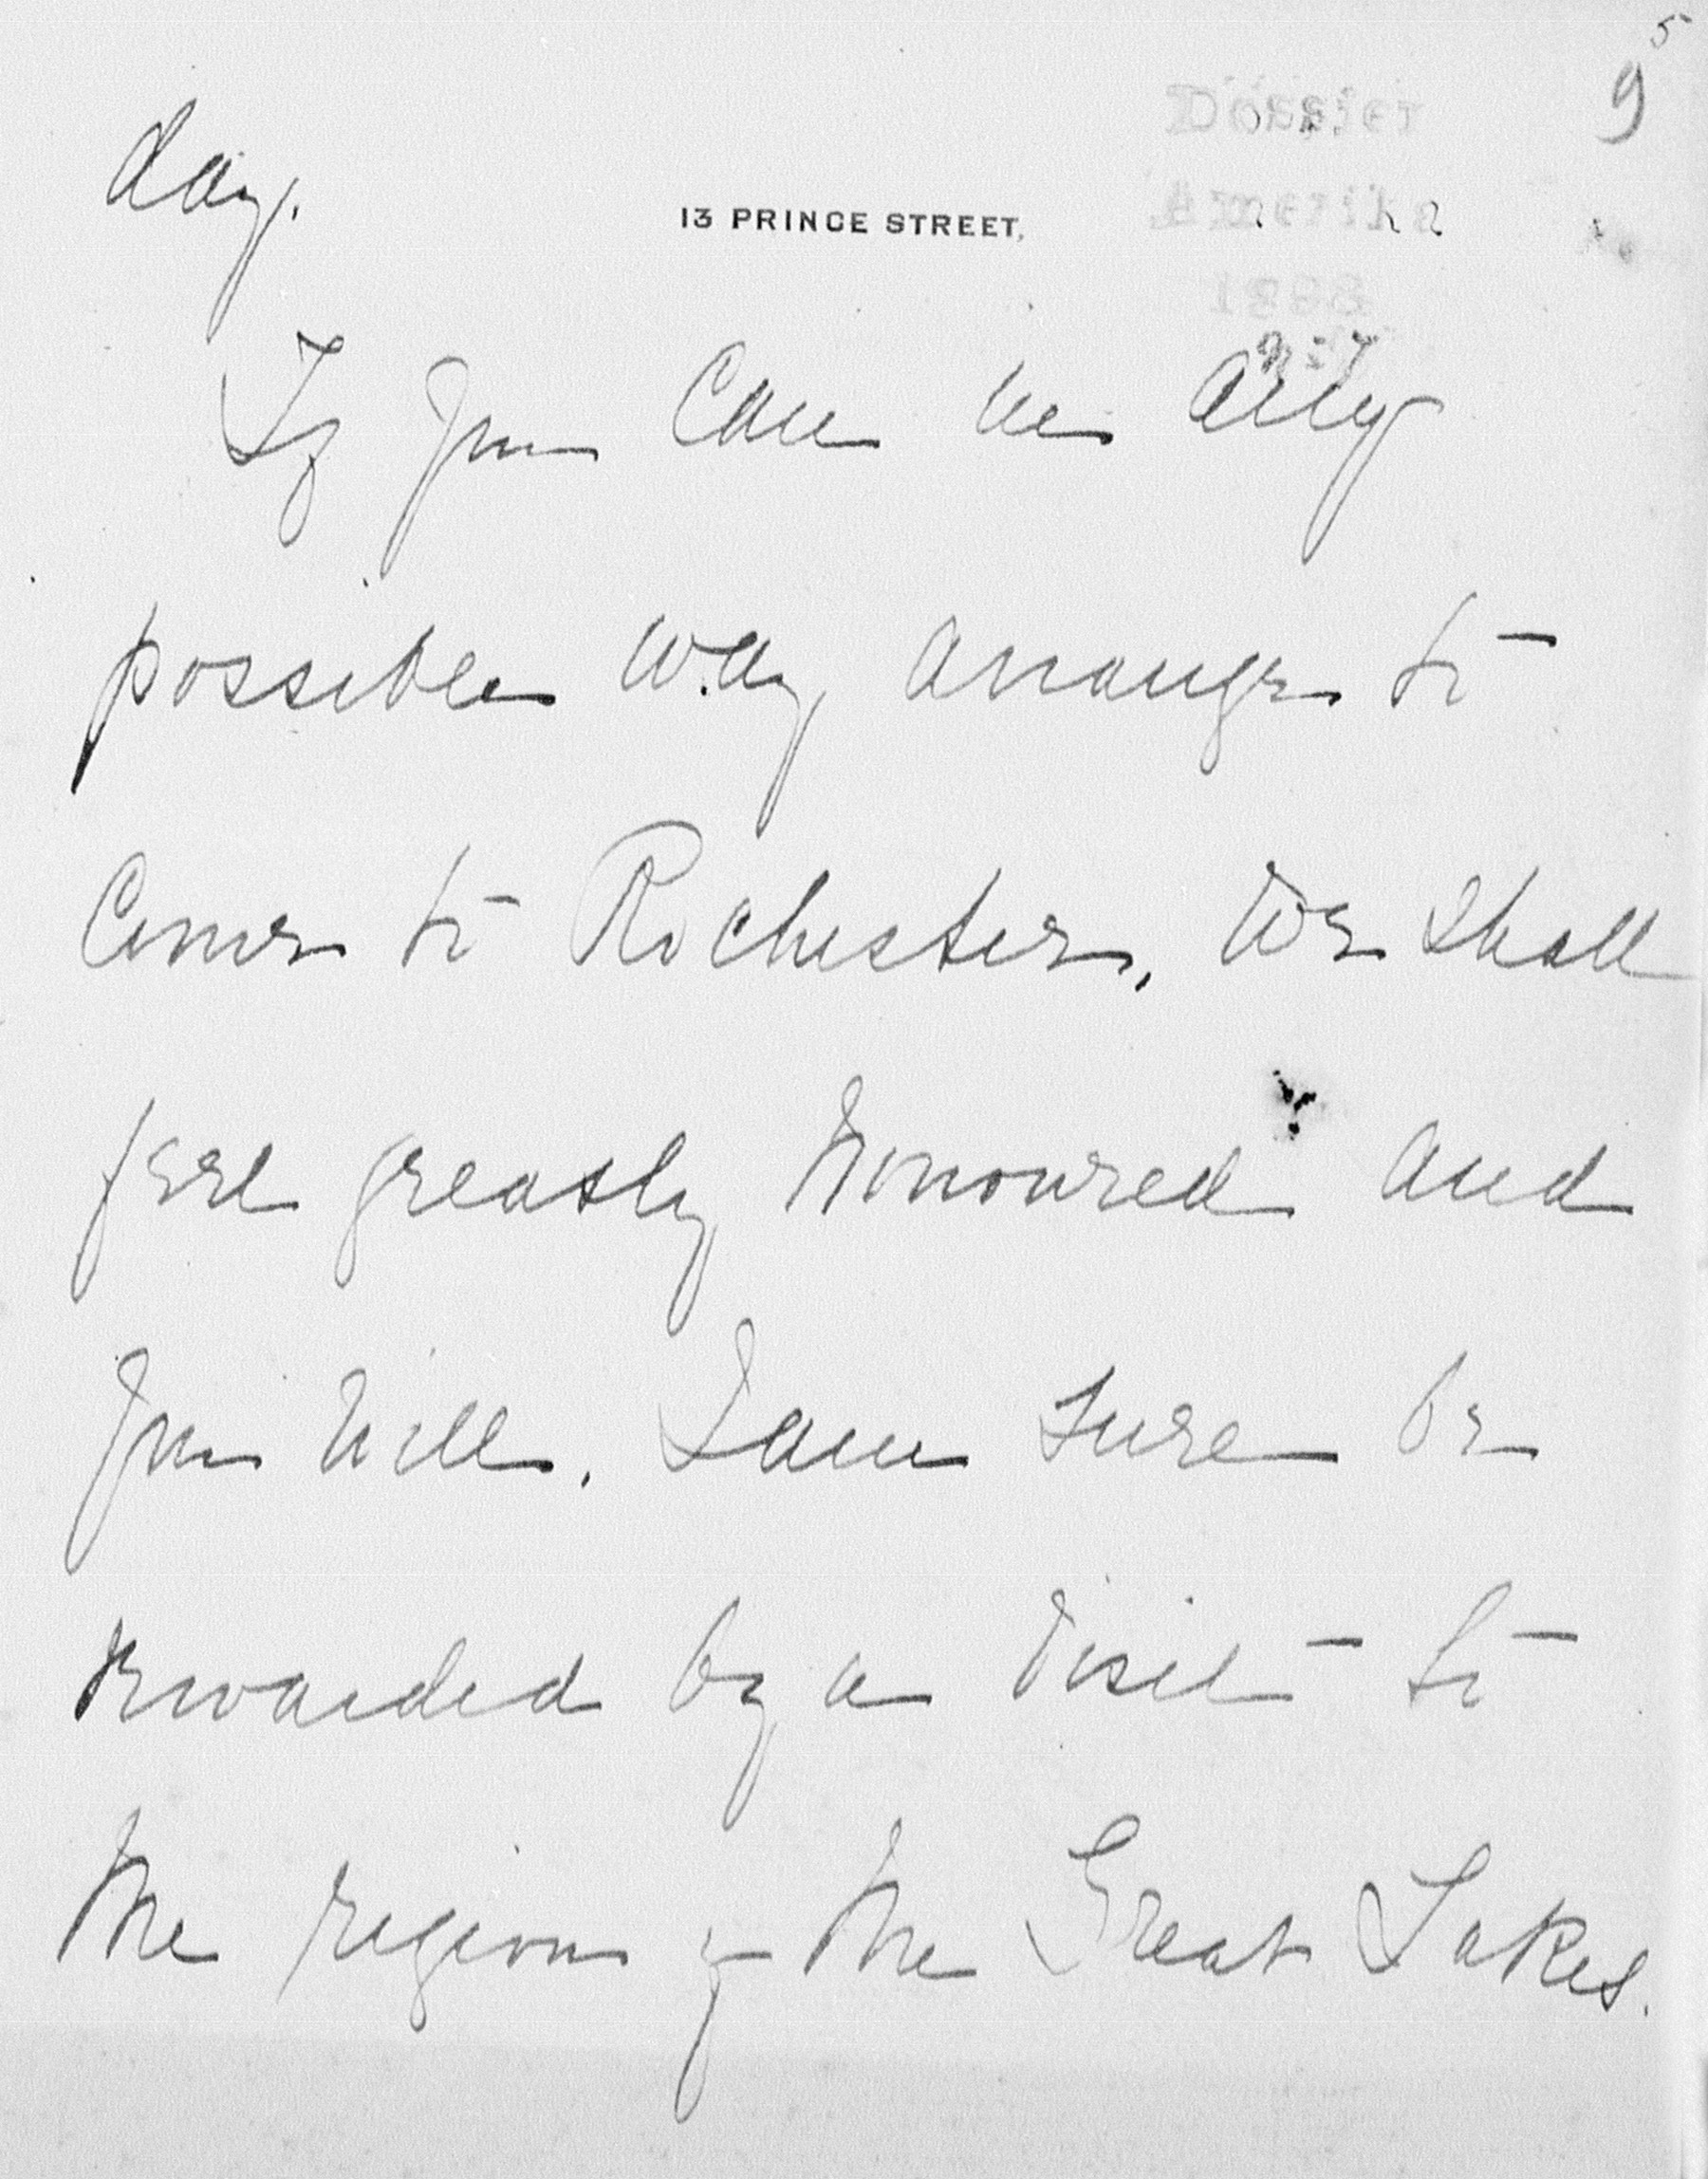 5
9
Dossier
Amerika
day.
13 PRINCE STREET,
If you can in any
possible way arrange to
come to Rochester, we shall
feel greatly honoured and
you will, I am sure be
rewarded by a visit to
the region of the Great Lakes.